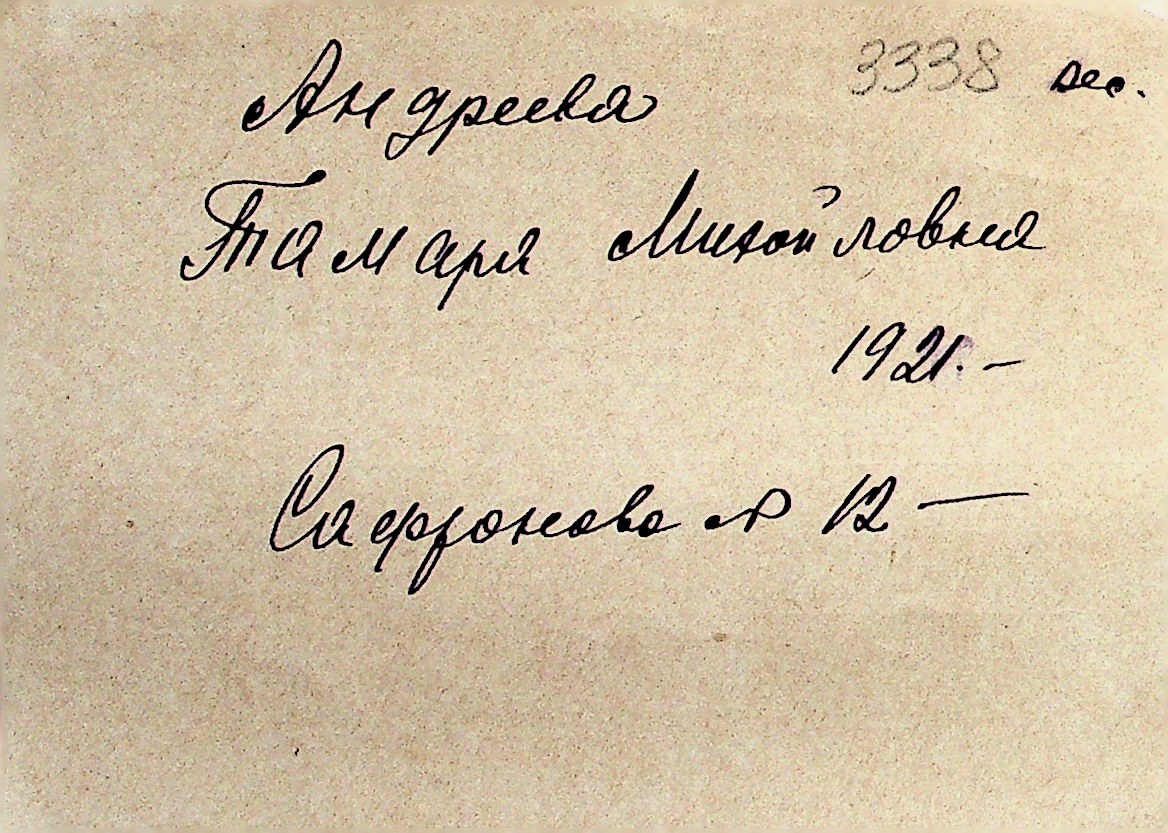 3338 вес.
Андреева
Тамара Михайловна
1921. –
Сафроново № 12 –